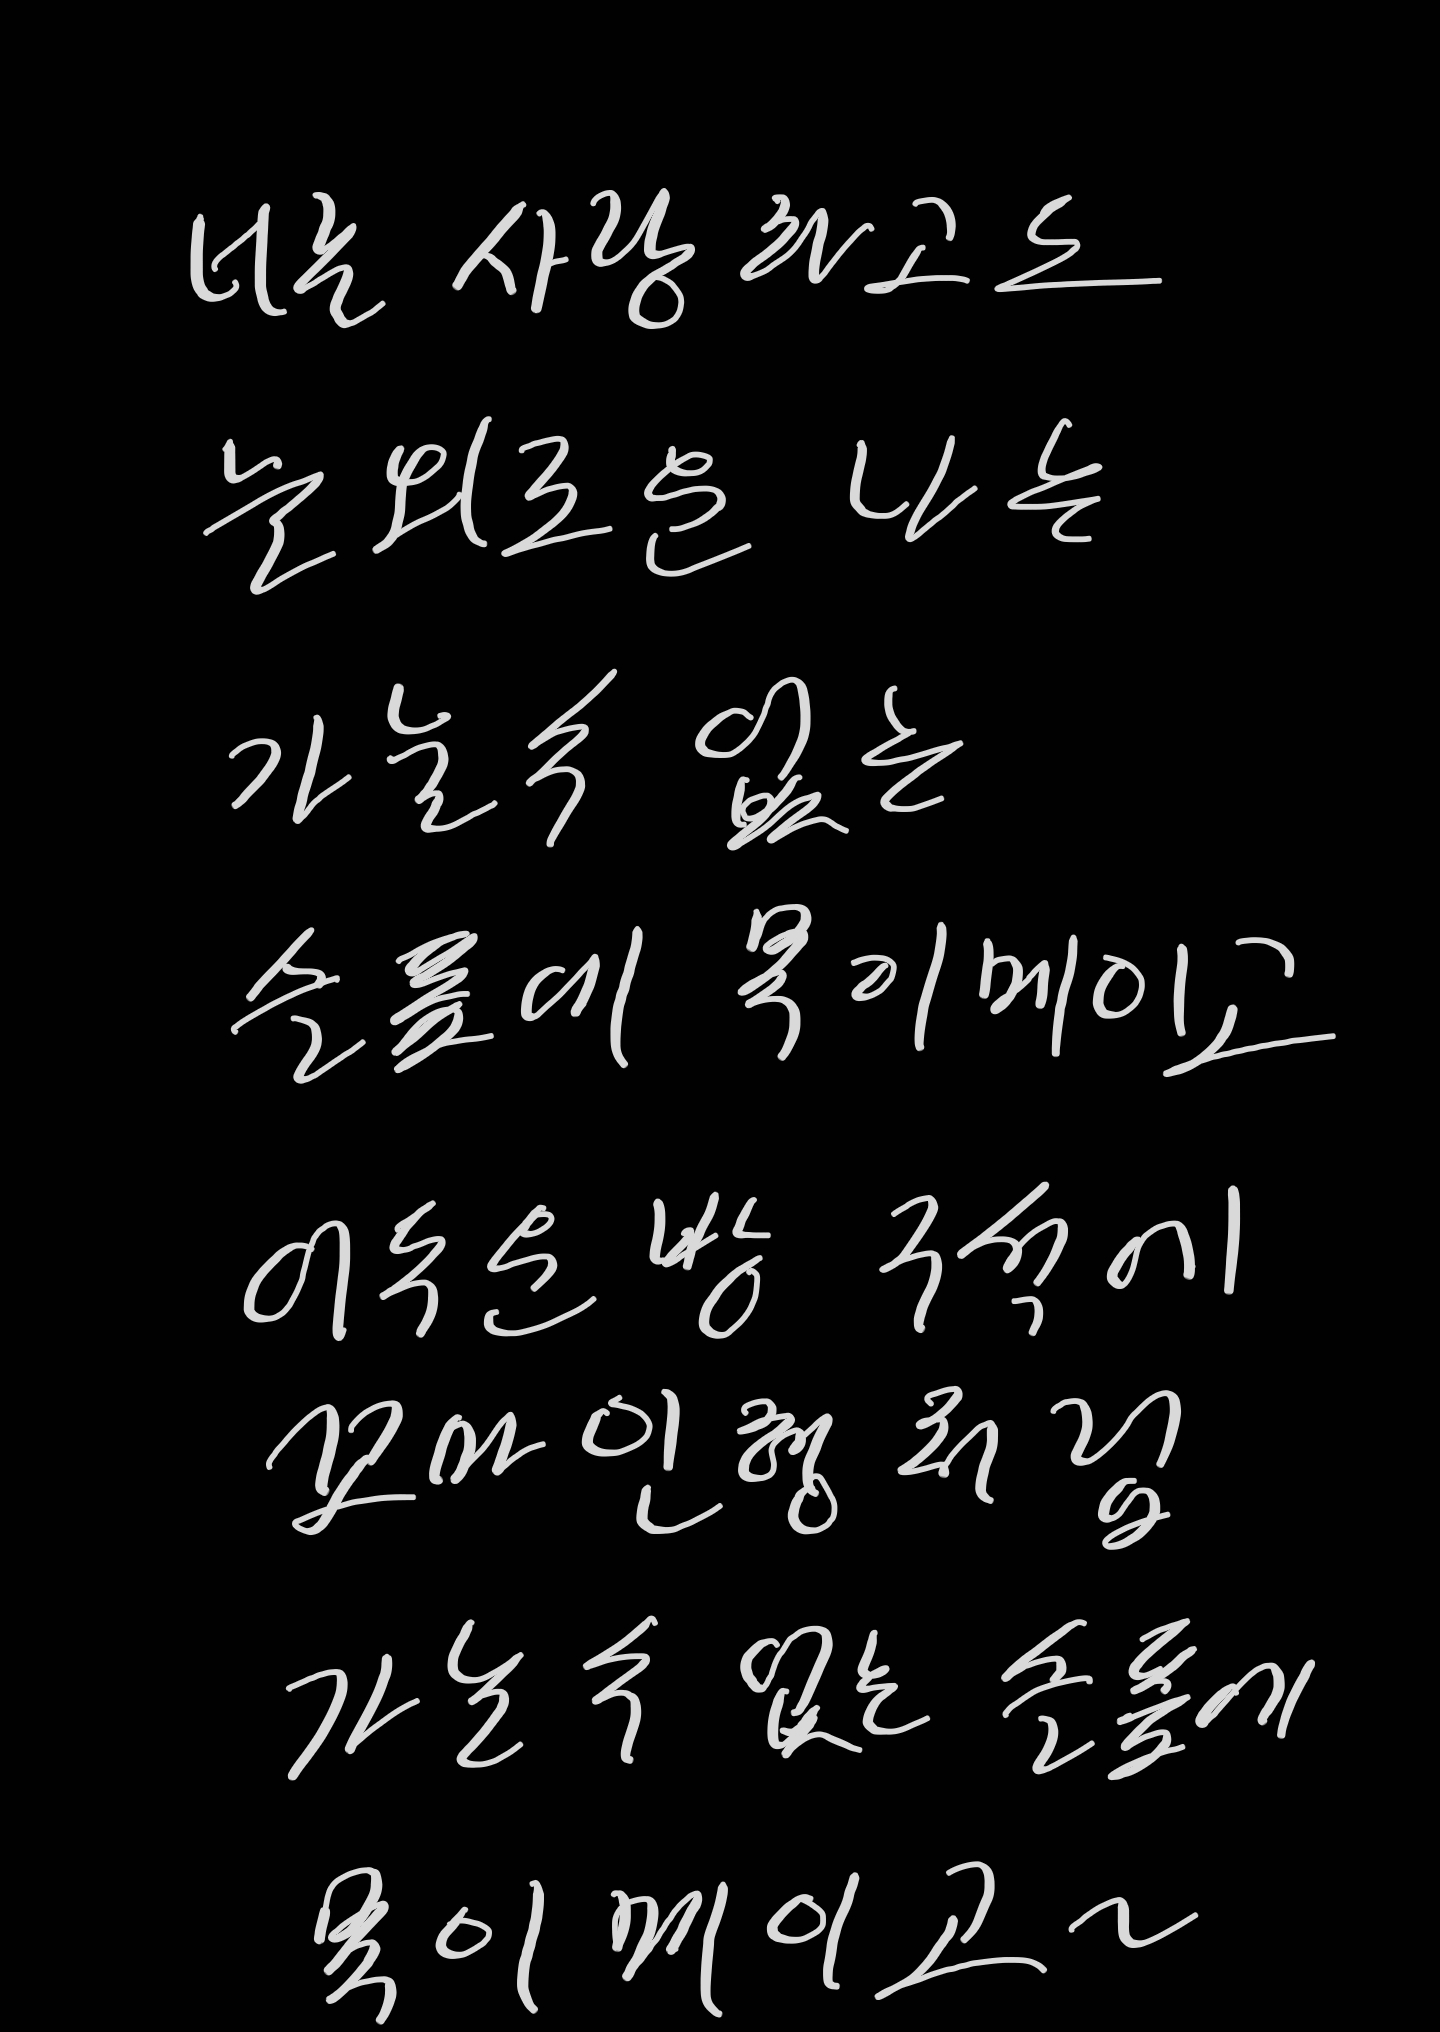 너를 사랑하고도
늘 외로운 나는
가눌 수 없는
슬픔에 목이메이고
어두운 방 구석에
꼬마 인형처럼
가눌 수 없는 슬픔에
목이 메이고~